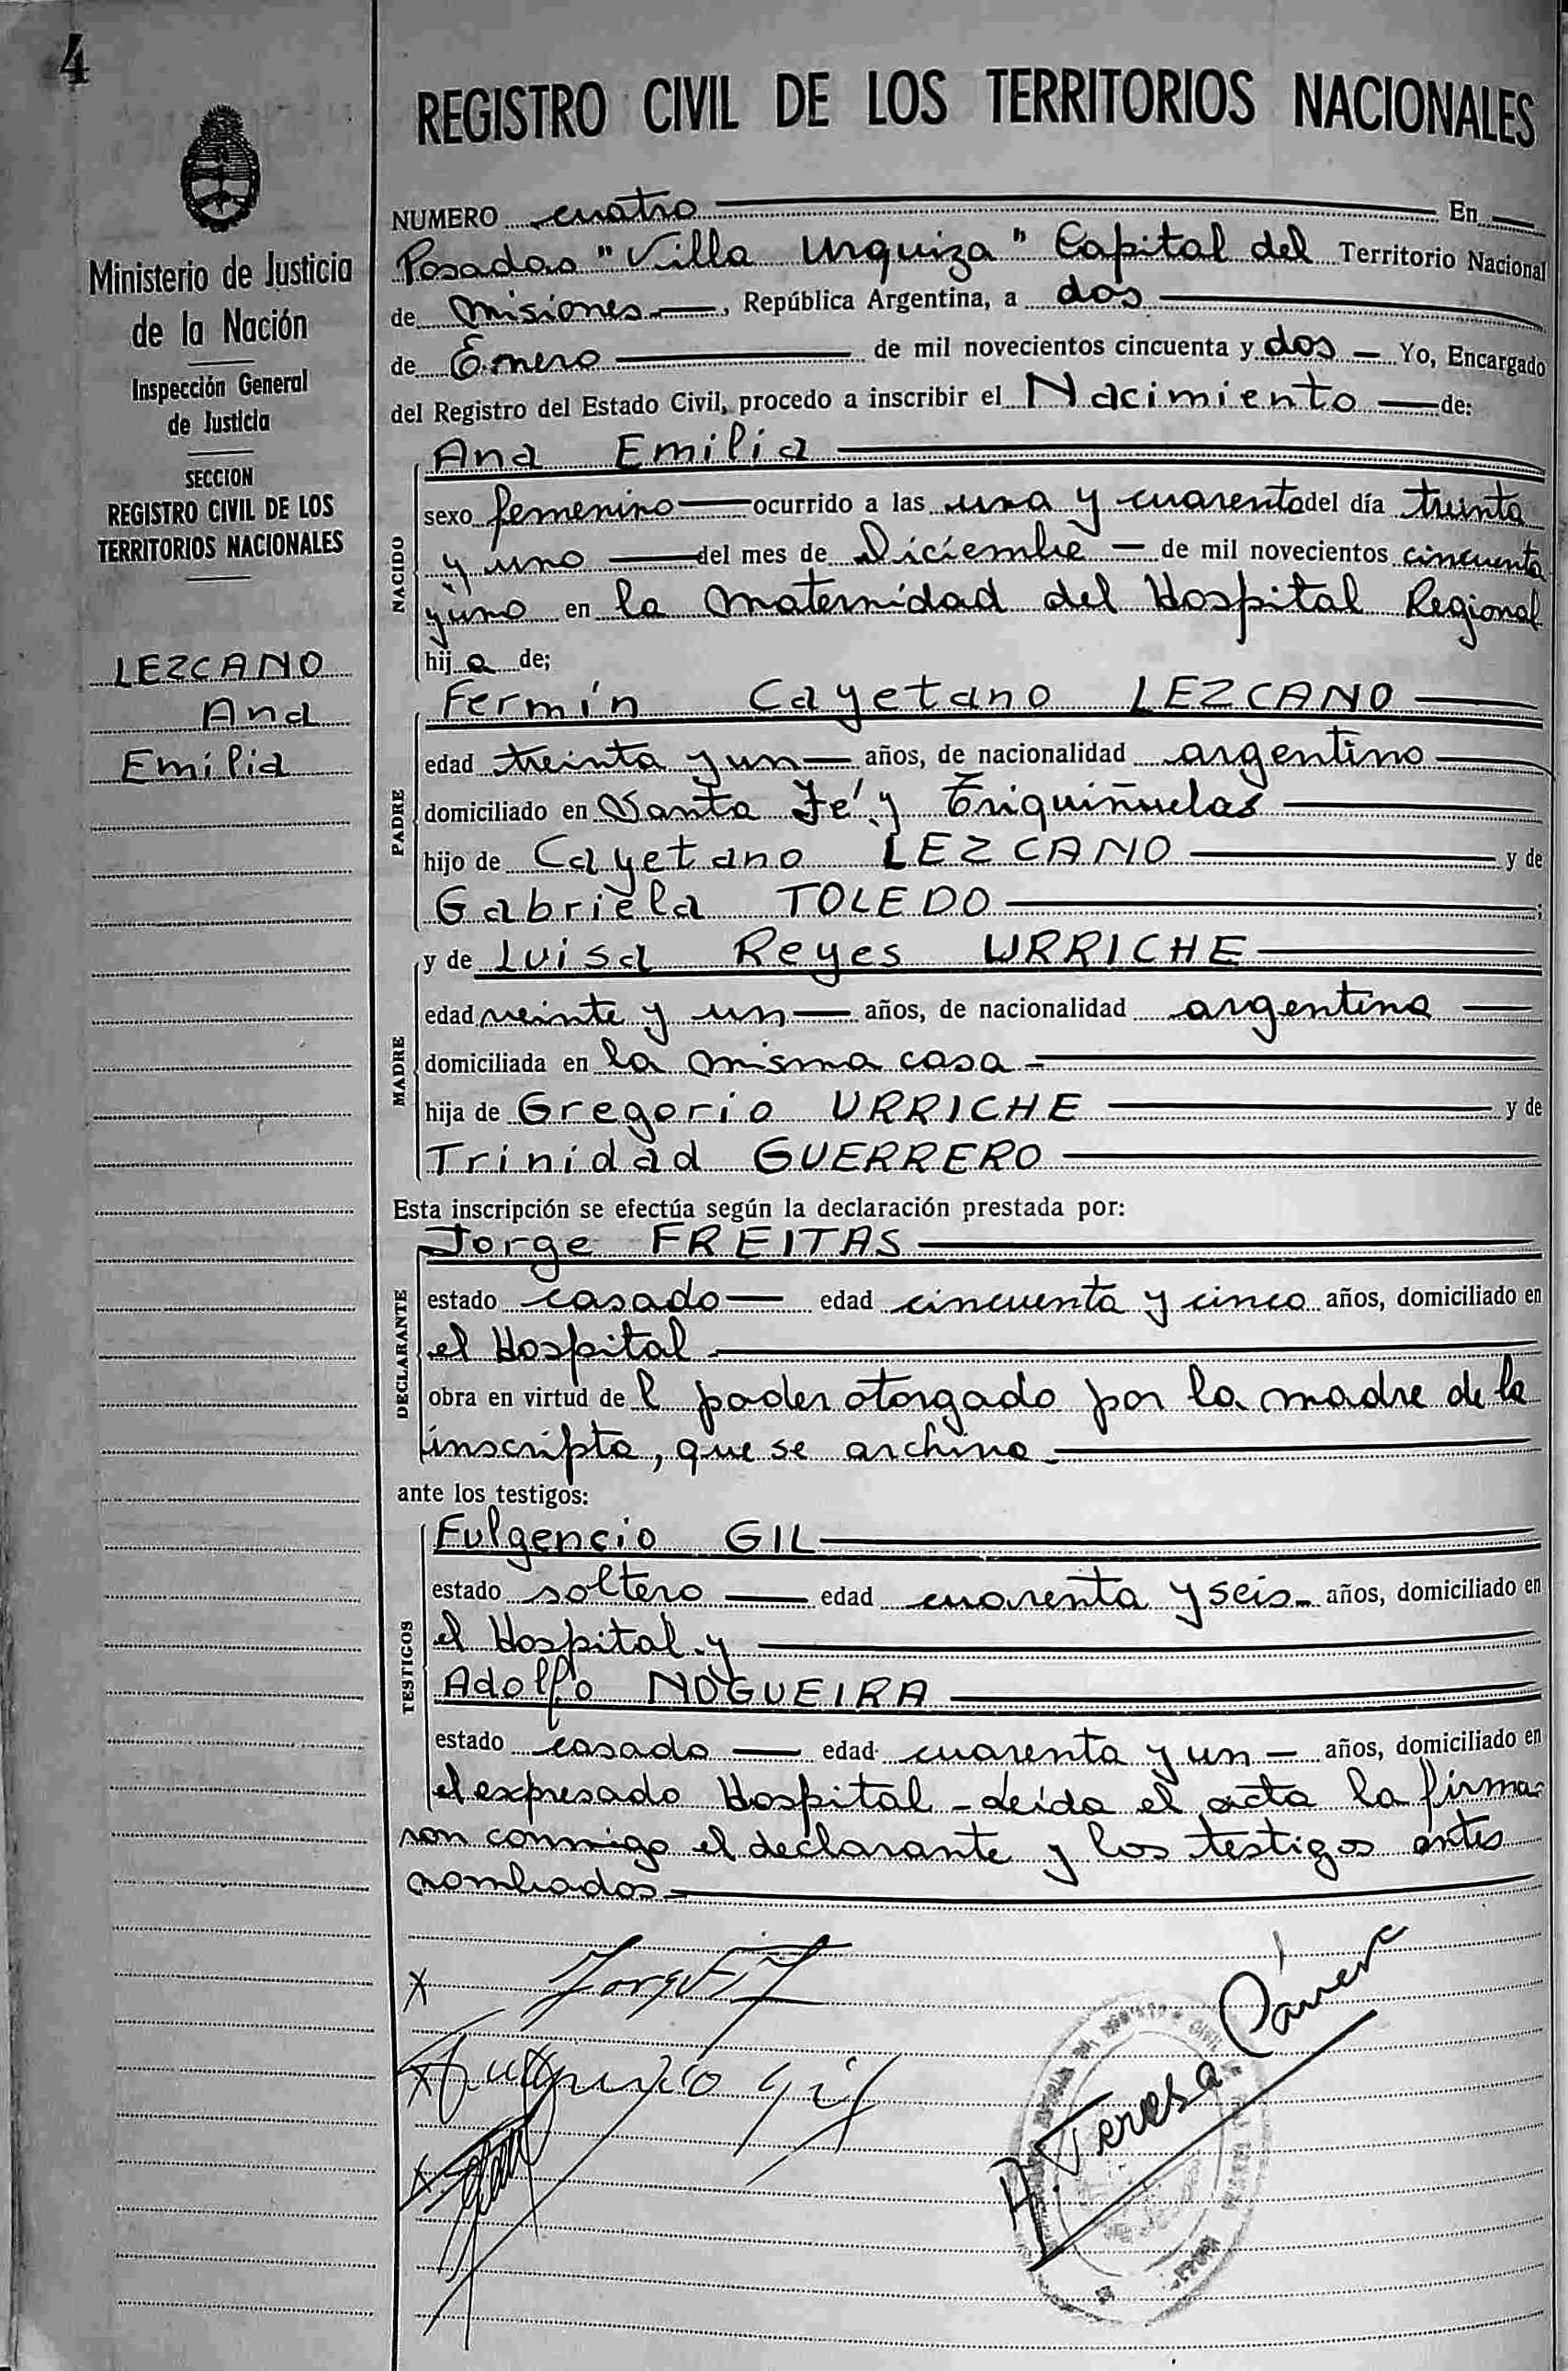 4
REGISTRO CIVIL DE LOS TERRITORIOS NACIONALES
Ministerio de Justicia
de la Nación
Inspección General
de Justicia
SECCION
REGISTRO CIVIL DE LOS
TERRITORIOS NACIONALES
LEZCANO
Ana
Emilia
NUMERO cuatro En
Posadas "Villa Urquiza" Capital del Territorio Nacional
de Misiones, República Argentina, a dos
de Enero de mil novecientos cincuenta y dos Yo, Encargado
del Registro del Estado Civil, procedo a inscribir el Nacimiento de:
Ana Emilia
NACIDO
sexo femenino ocurrido a las una y cuarenta del día treinta
y uno del mes de Diciembre de mil novecientos cincuenta
y uno en la maternidad del Hospital Regional
hij a de;
Fermín Cayetano LEZCANO
PADRE
edad treinta y un años, de nacionalidad argentino
domiciliado en Santa Fé y Triquiñuelas
hijo de Cayetano LEZCANO y de
Gabriela TOLEDO ;
y de Luisa Reyes URRICHE
MADRE
edad veinte y un años, de nacionalidad argentina
domiciliada en la misma casa
hija de Gregorio URRICHE y de
Trinidad GUERRERO
Esta inscripción se efectúa según la declaración prestada por:
Jorge FREITAS
DECLARANTE
estado casado edad cincuenta y cinco años, domiciliado en
el Hospital
obra en virtud de l poder otorgado por la madre de la
inscripta, que se archiva
ante los testigos:
Fulgencio GIL
TESTIGOS
estado soltero edad cuarenta y seis años, domiciliado en
el Hospital y
Adolfo NOGUEIRA
estado casado edad cuarenta y un años, domiciliado en
el expresado Hospital - Leída el acta la firma
ron conmigo el declarante y los testigos antes
nombrados
X
X Fulgencio Gil
X
A. Teresa